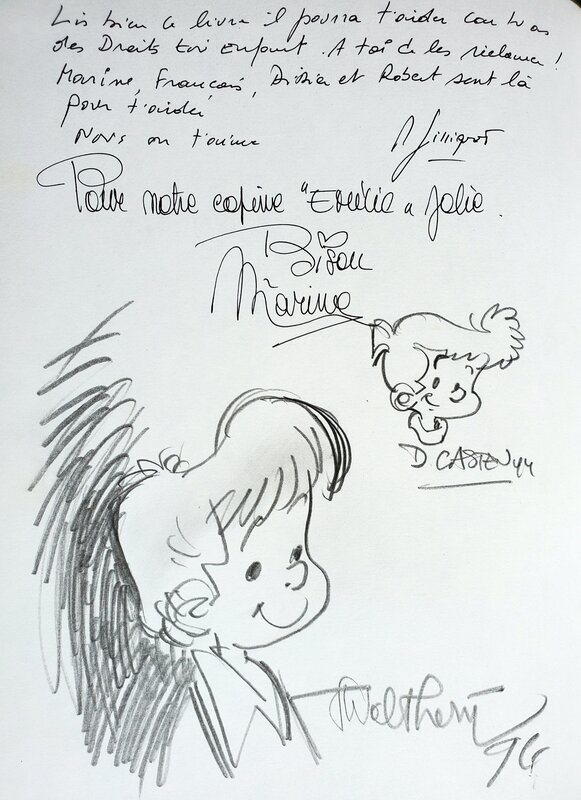 Lis bien ce livre il pourra t'aider car tu as
des Droits toi enfant. A toi de les réclamer !
Marine, François, Didier et Robert sont là
pour t'aider
Nous on t'aime
Pour notre copine "Emilie" Jolie.
Bisou
Marine
D CASTEN 94
Walthéry
94